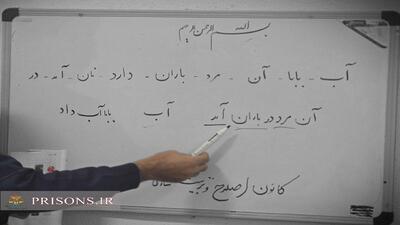 بسم الله الرحمن الرحیم
آب - بابا - آن - مرد - باران - دارد - نان - آمد - در
آن مرد در باران آمد آب بابا آب داد
کانون اصلاح و تربیت
PRISONS.IR